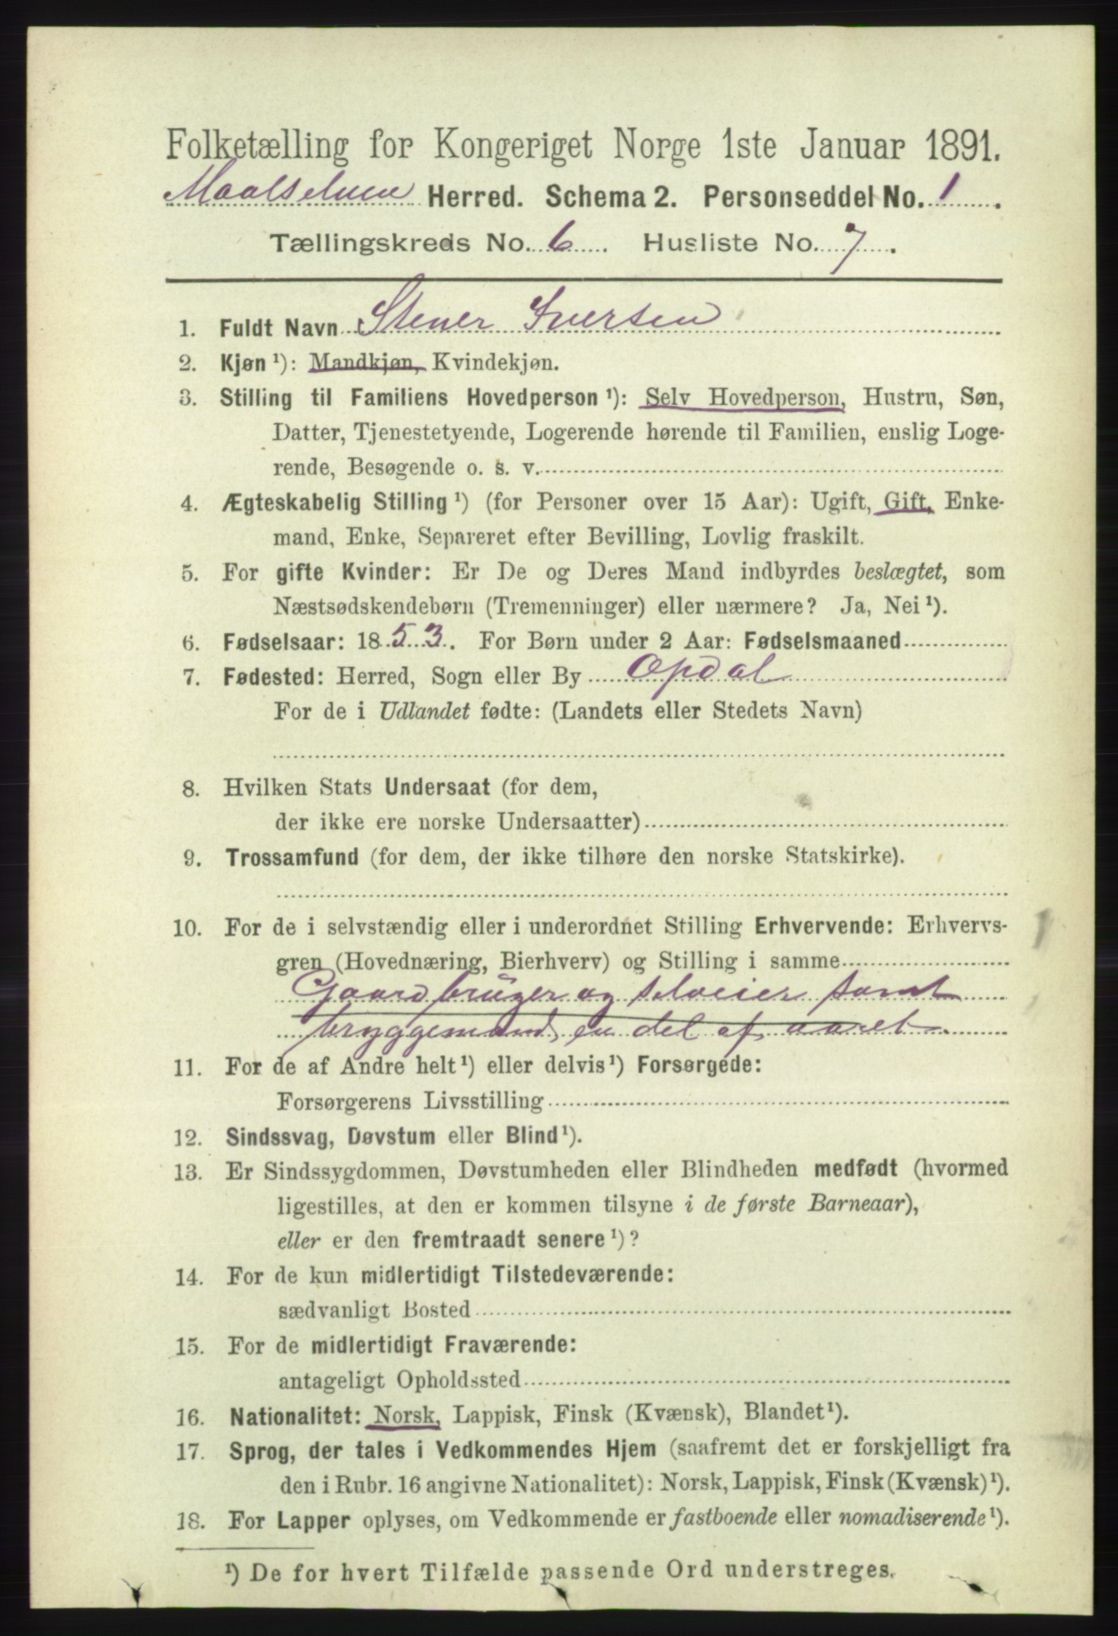 Folketælling for Kongeriget Norge 1ste Januar 1891.
Maalselven Herred. Schema 2. Personseddel No. 1.
Tællingskreds No. 6. Husliste No. 7.
1. Fuldt Navn Stener Iversen
2. Kjøn ¹): Mandkjøn, Kvindekjøn.
3. Stilling til Familiens Hovedperson ¹): Selv Hovedperson, Hustru, Søn,
Datter, Tjenestetyende, Logerende hørende til Familien, enslig Loge-
rende, Besøgende o. s. v.
4. Ægteskabelig Stilling ¹) (for Personer over 15 Aar): Ugift, Gift, Enke-
mand, Enke, Separeret efter Bevilling, Lovlig fraskilt.
5. For gifte Kvinder: Er De og Deres Mand indbyrdes beslægtet, som
Næstsødskendebørn (Tremenninger) eller nærmere? Ja, Nei ¹).
6. Fødselsaar: 1853. For Børn under 2 Aar: Fødselsmaaned
7. Fødested: Herred, Sogn eller By Opdal
For de i Udlandet fødte: (Landets eller Stedets Navn)
8. Hvilken Stats Undersaat (for dem,
der ikke ere norske Undersaatter)
9. Trossamfund (for dem, der ikke tilhøre den norske Statskirke).
10. For de i selvstændig eller i underordnet Stilling Erhvervende: Erhvervs-
gren (Hovednæring, Bierhverv) og Stilling i samme
Gaardbruger og selveier samt
bryggemand en del af aaret
11. For de af Andre helt ¹) eller delvis ¹) Forsørgede:
Forsørgerens Livsstilling
12. Sindssvag, Døvstum eller Blind ¹).
13. Er Sindssygdommen, Døvstumheden eller Blindheden medfødt (hvormed
ligestilles, at den er kommen tilsyne i de første Barneaar),
eller er den fremtraadt senere ¹)?
14. For de kun midlertidigt Tilstedeværende:
sædvanligt Bosted
15. For de midlertidigt Fraværende:
antageligt Opholdssted
16. Nationalitet: Norsk, Lappisk, Finsk (Kvænsk), Blandet ¹).
17. Sprog, der tales i Vedkommendes Hjem (saafremt det er forskjelligt fra
den i Rubr. 16 angivne Nationalitet): Norsk, Lappisk, Finsk (Kvænsk) ¹).
18. For Lapper oplyses, om Vedkommende er fastboende eller nomadiserende ¹).
¹) De for hvert Tilfælde passende Ord understreges.